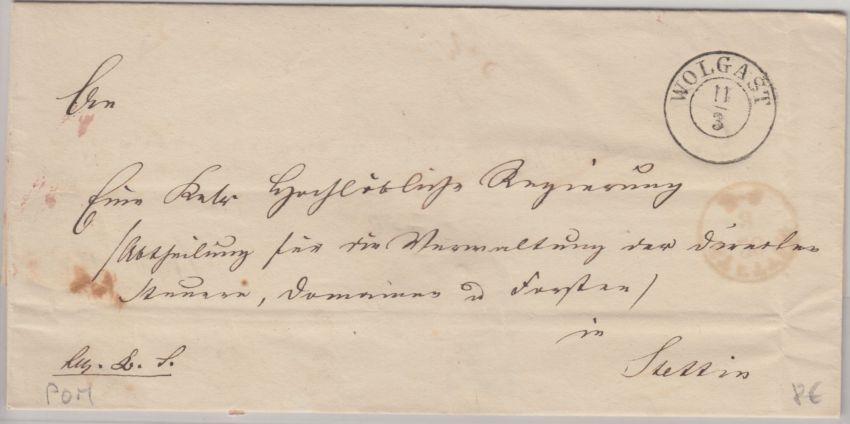 WOLGAST
11/3
An
Eine Hochlöbliche Regierung
/Abtheilung für die Verwaltung der directen
Steuern, Domainen u Forsten/
in
Stettin
POM
8€